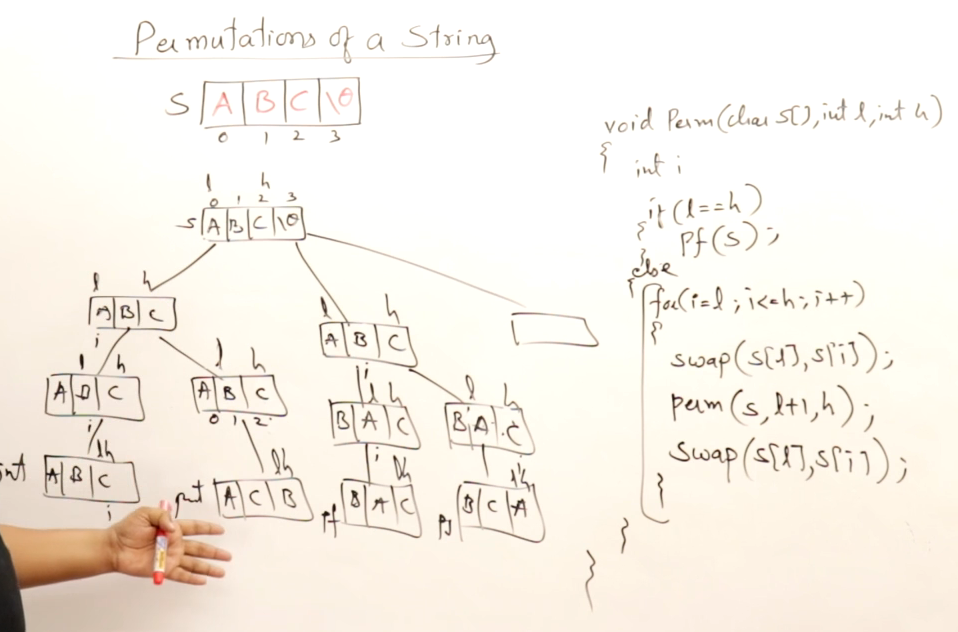 Permutations of a String
S A B C \0
0 1 2 3
l h
0 1 2 3
S A B C \0
l h
A B C
i
l h
A B C
i
l h
A B C
i
l h
A B C
0 1 2
l h
print A C B
l h
A B C
i
l h
B A C
i
l h
Pf B A C
l h
B A C
l h
Pf B C A
void Perm(char s[], int l, int h)
{ int i
if (l==h)
{ Pf(s);
}
else
{ for(i=l; i<=h; i++)
{
swap(s[l], s[i]);
perm(s, l+1, h);
swap(s[l], s[i]);
}
}
}